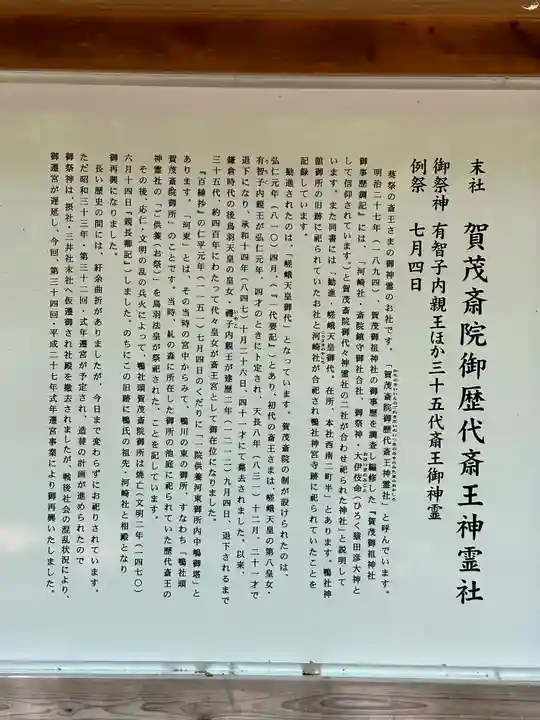 末社　賀茂斎院御歴代斎王神霊社
御祭神　有智子内親王ほか三十五代斎王御神霊
例祭　七月四日
葵祭の斎王さまの御神霊のお社です。「賀茂斎院御歴代斎王神霊社」と呼んでいます。
明治二十七年（一八九四）、賀茂御祖神社の御事歴を調査し編修した『賀茂御祖神社
御事歴調記』には、「河崎社、斎院鎮守御社合社、御祭神・大伊伎命（ひろく猿田彦大神と
して信仰されています。）と賀茂斎院御代々神霊社の二社が合わせ祀られた神社」と説明して
います。また同書には「勧進、嵯峨天皇御代。在所、本社西南二町半」とあります。鴨社神
館御所の旧跡に祀られていたお社と河崎社が合祀され鴨社神宮寺跡に祀られていたことを
記録しています。
勧進されたのは、「嵯峨天皇御代」となっています。賀茂斎院の制が設けられたのは、
弘仁元年（八一〇）四月、（『一代要記』）とあり、初代の斎王さまは、嵯峨天皇の第八皇女・
有智子内親王が弘仁元年、四才のときに卜定され、天長八年（八三一）十二月、二十一才で
退下になり、承和十四年（八四七）十月二十六日、四十一才にて薨去されました。以来、
鎌倉時代の後鳥羽天皇の皇女、禮子内親王が建歴二年（一二一二）九月四日、退下されるまで
三十五代、約四百年にわたって代々皇女が斎王宮として御在位になりました。
『百練抄』の仁平元年（一一五一）七月四日のくだりに「一院供養河東御所内中鴨御塔」と
あります。「河東」とは、その当時の宮中からみて、鴨川の東の御所、すなわち「鴨社頭
賀茂斎院御所」のことです。当時、糺の森に所在した御所の池庭に祀られていた歴代斎王の
神霊社の「ご供養（お祭）を鳥羽法皇が祭祀された」ことを記しています。
その後、応仁・文明の乱の兵火によって、鴨社頭賀茂斎院御所は焼亡（文明二年（一四七〇）
六月十四日『親長卿記』）しました。のちにこの旧跡に鴨氏の祖先・河崎社と相殿となり
御再興になりました。
長い歴史の間には、紆余曲折がありましたが、今日まで変わらずにお祀りされています。
ただ昭和三十三年、第三十二回・式年遷宮が予定され、造替の計画が進められたので
御祭神は、摂社・三井社末社へ仮遷御され社殿を撤去されましたが、戦後社会の混乱状況により、
御遷宮が遅延し、今回、第三十四回・平成二十七年式年遷宮事業により御再興いたしました。